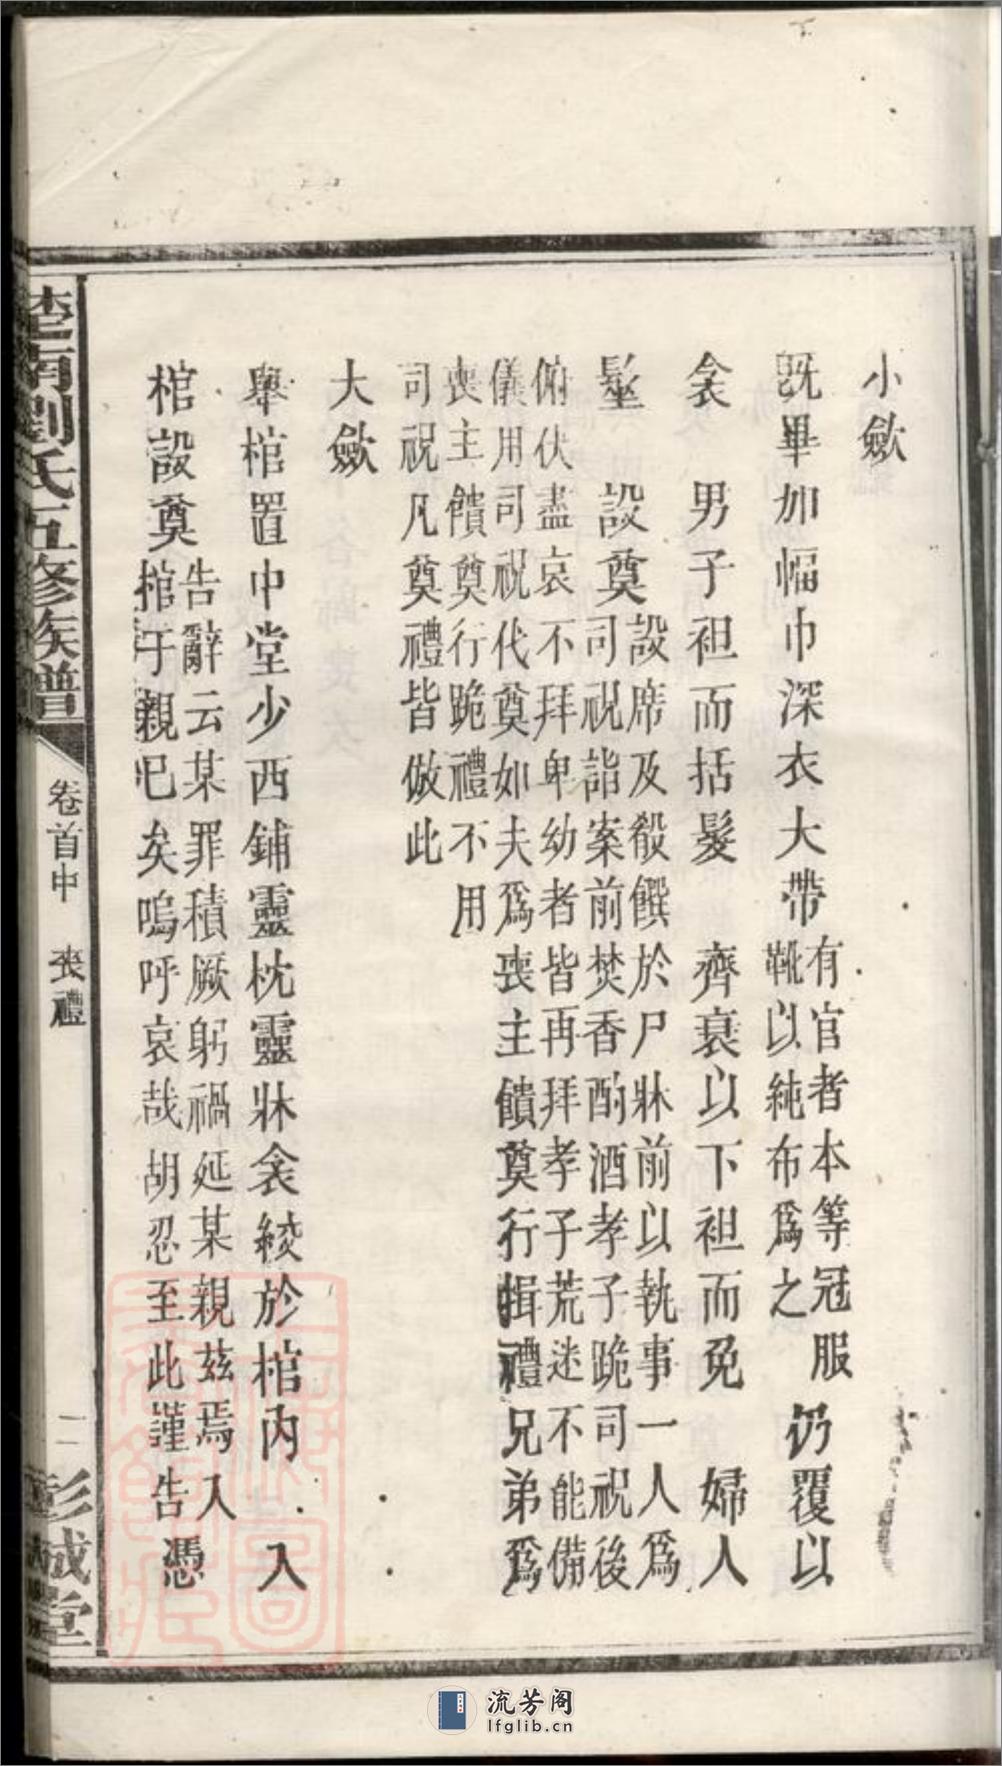 小斂
既畢加幅巾深衣大帶有官者本等冠服
靴以純布爲之仍覆以
衾　男子袒而括髮　齊衰以下袒而免　婦人
髽　設奠設席及殽饌於尸牀前以執事一人爲
司祝詣案前焚香酌酒孝子跪司祝後
俯伏盡哀不拜卑幼者皆再拜孝子荒迷不能備
儀用司祝代奠如夫爲喪主饋奠行揖禮兄弟爲
喪主饋奠行跪禮不用
司祝凡奠禮皆倣此
大斂
舉棺置中堂少西鋪靈枕靈牀衾綾於棺內　入
棺設奠告辭云某罪積厥躬禍延某親茲焉入
棺于親已矣嗚呼哀哉胡忍至此謹告　憑
楚南劉氏五修族譜
卷首中　喪禮
二
彭城堂
流芳阁
lfglib.cn